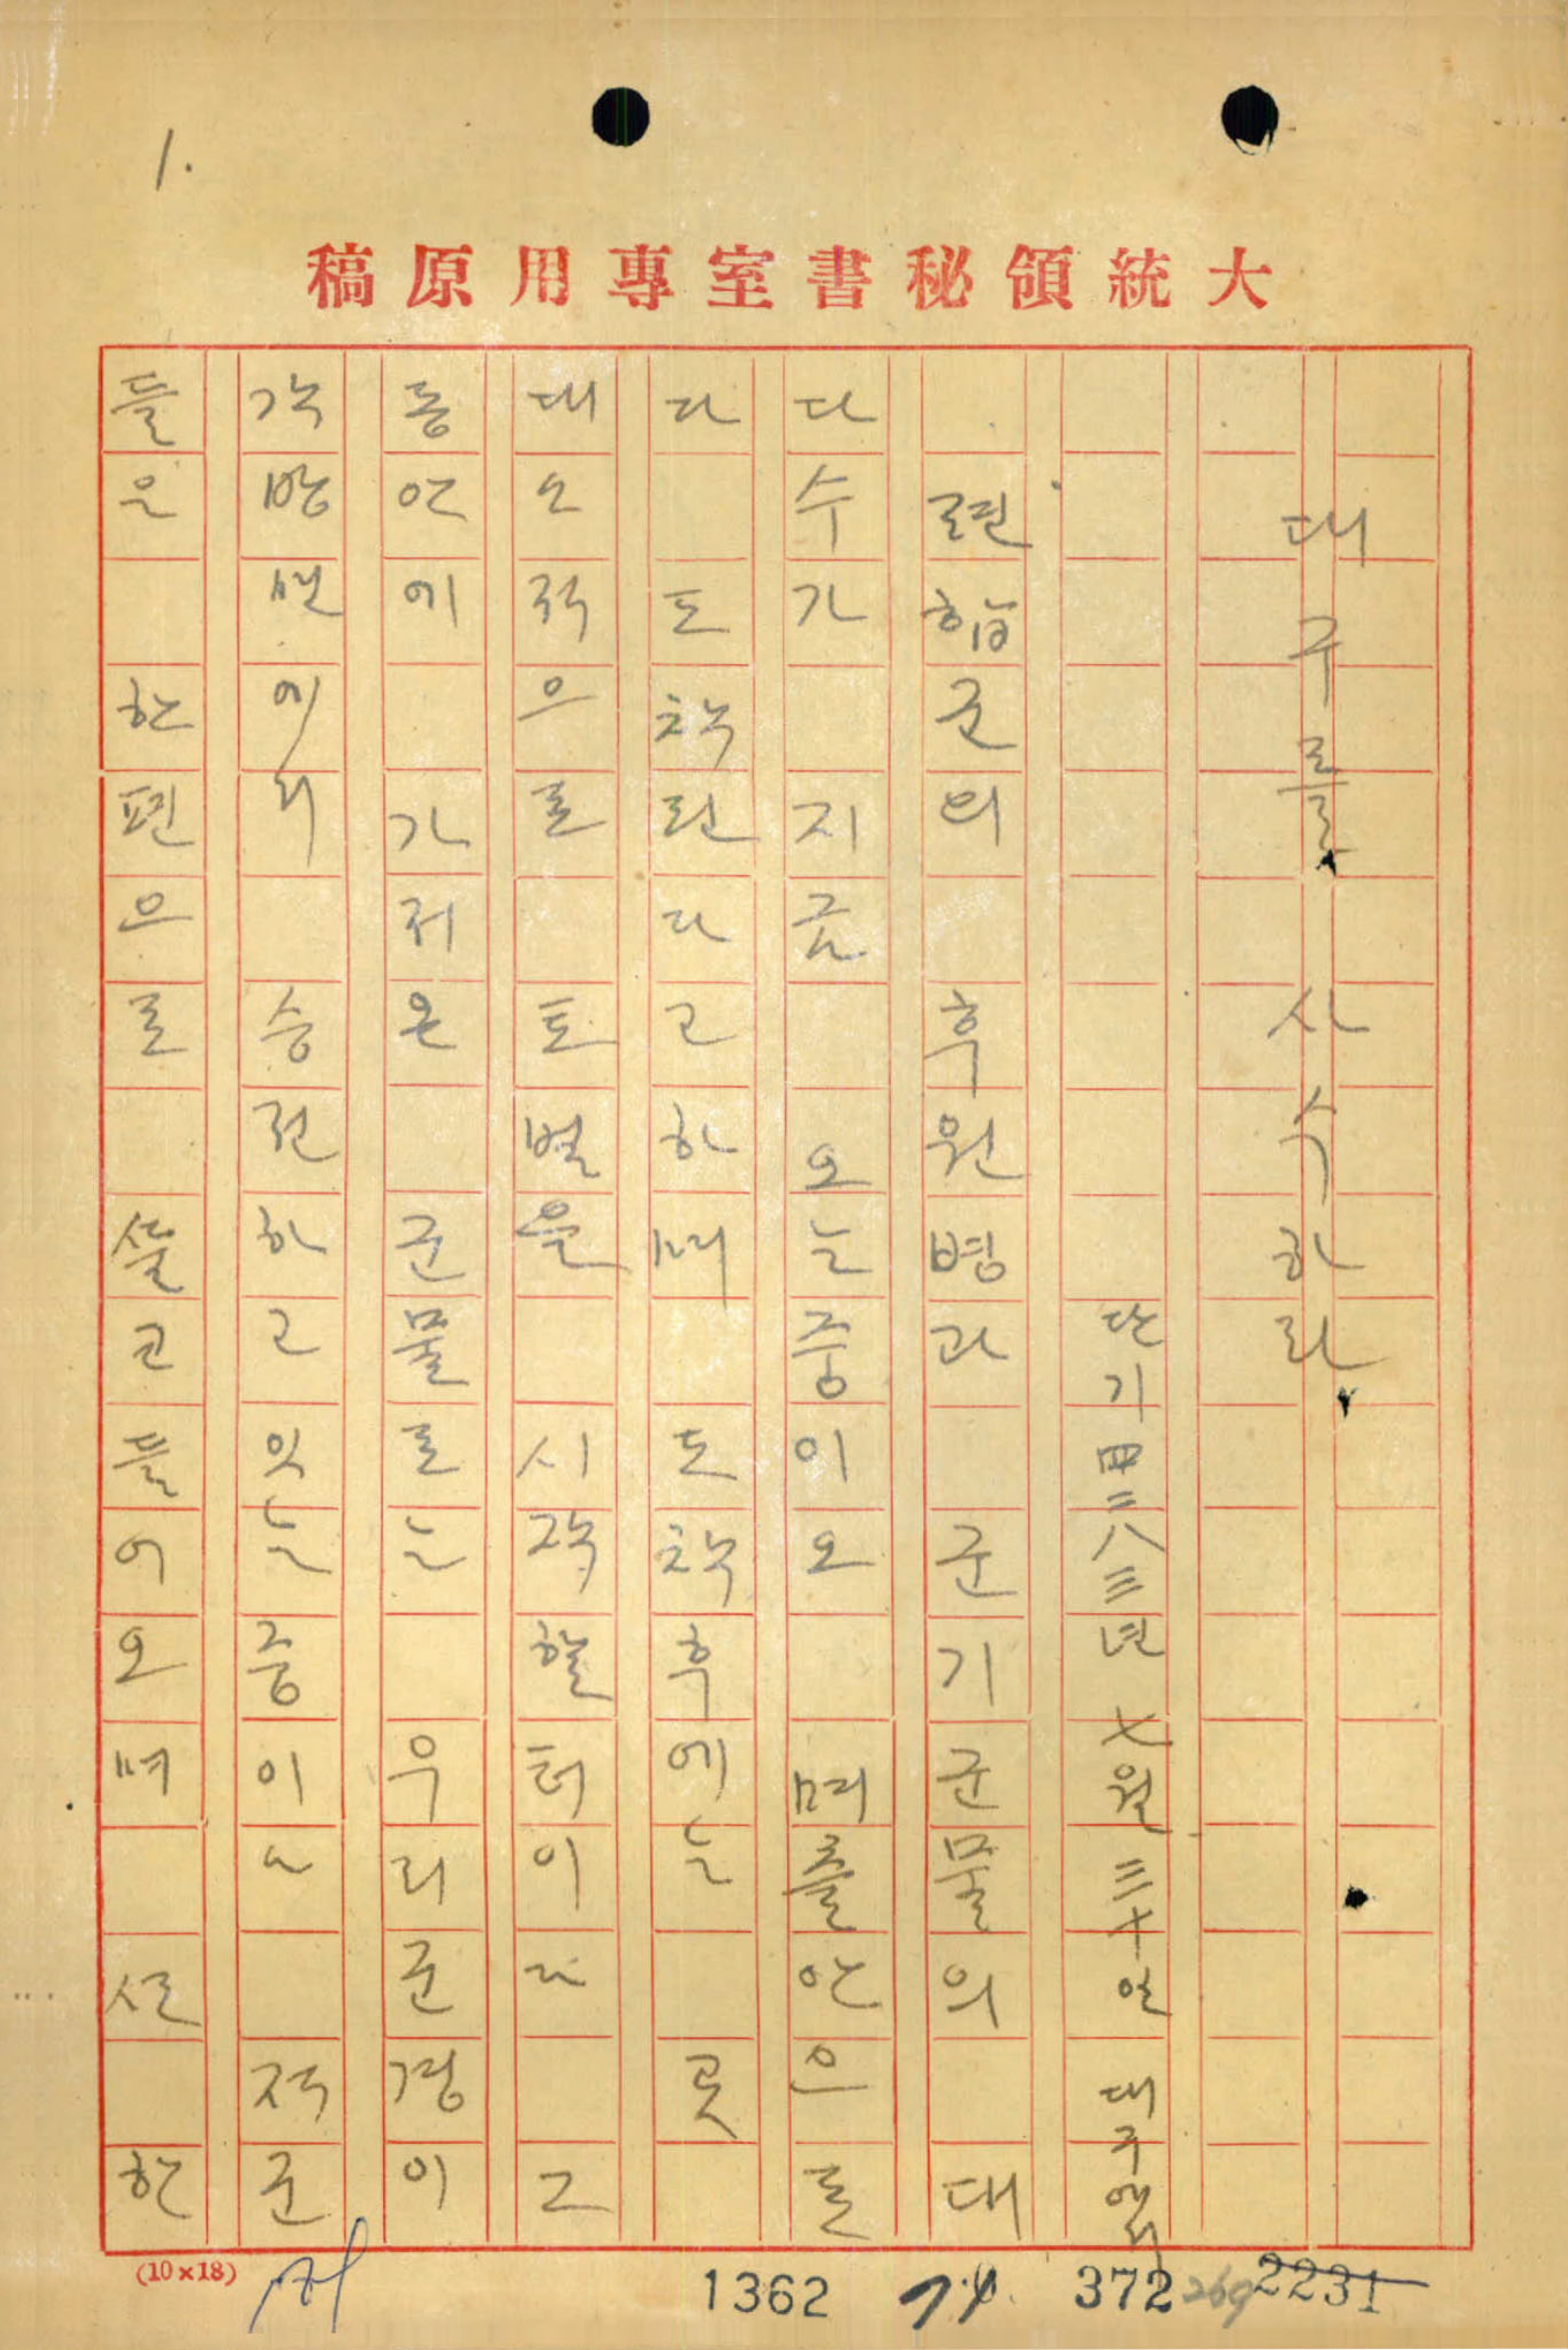 1.
大統領秘書室專用原稿
대구를 사수하라
단기 四二八三년 七월 三十일 대구에서
련합군의 후원병과 군기군물의 대
다수가 지금 오는중이오 며츨안으로
다 도착된다고하며 도착후에는 곳
대소적으로 토벌을 시작할터이라 그
동안에 가저온 군물로는 우리군경이
각방면에서 승전하고잇는중이나 적군
들은 한편으로 쓸고들어오며 선 한
(10×18)
1362
372
269
2231